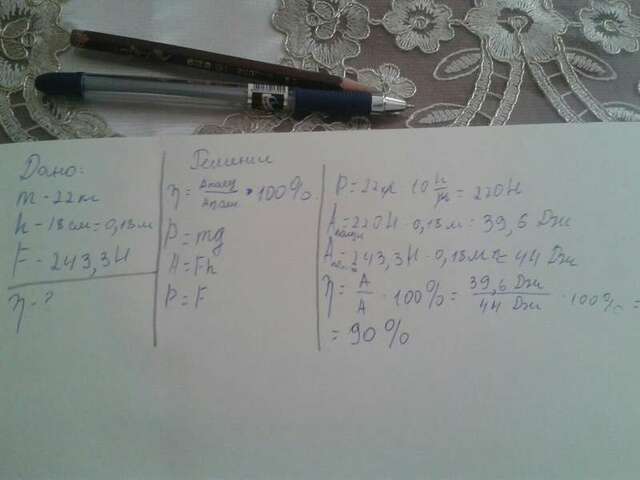 Дано:
m - 22кг
h - 18см = 0,18м
F - 243,3Н
η - ?
Решение
η = Aполез / Aполн · 100%
P = mg
A = Fh
P = F
P = 22кг · 10 Н/кг = 220Н
A = 220Н · 0,18м = 39,6 Дж
A = 243,3Н · 0,18м ≈ 44 Дж
η = A / A · 100% = 39,6 Дж / 44 Дж · 100% =
= 90%